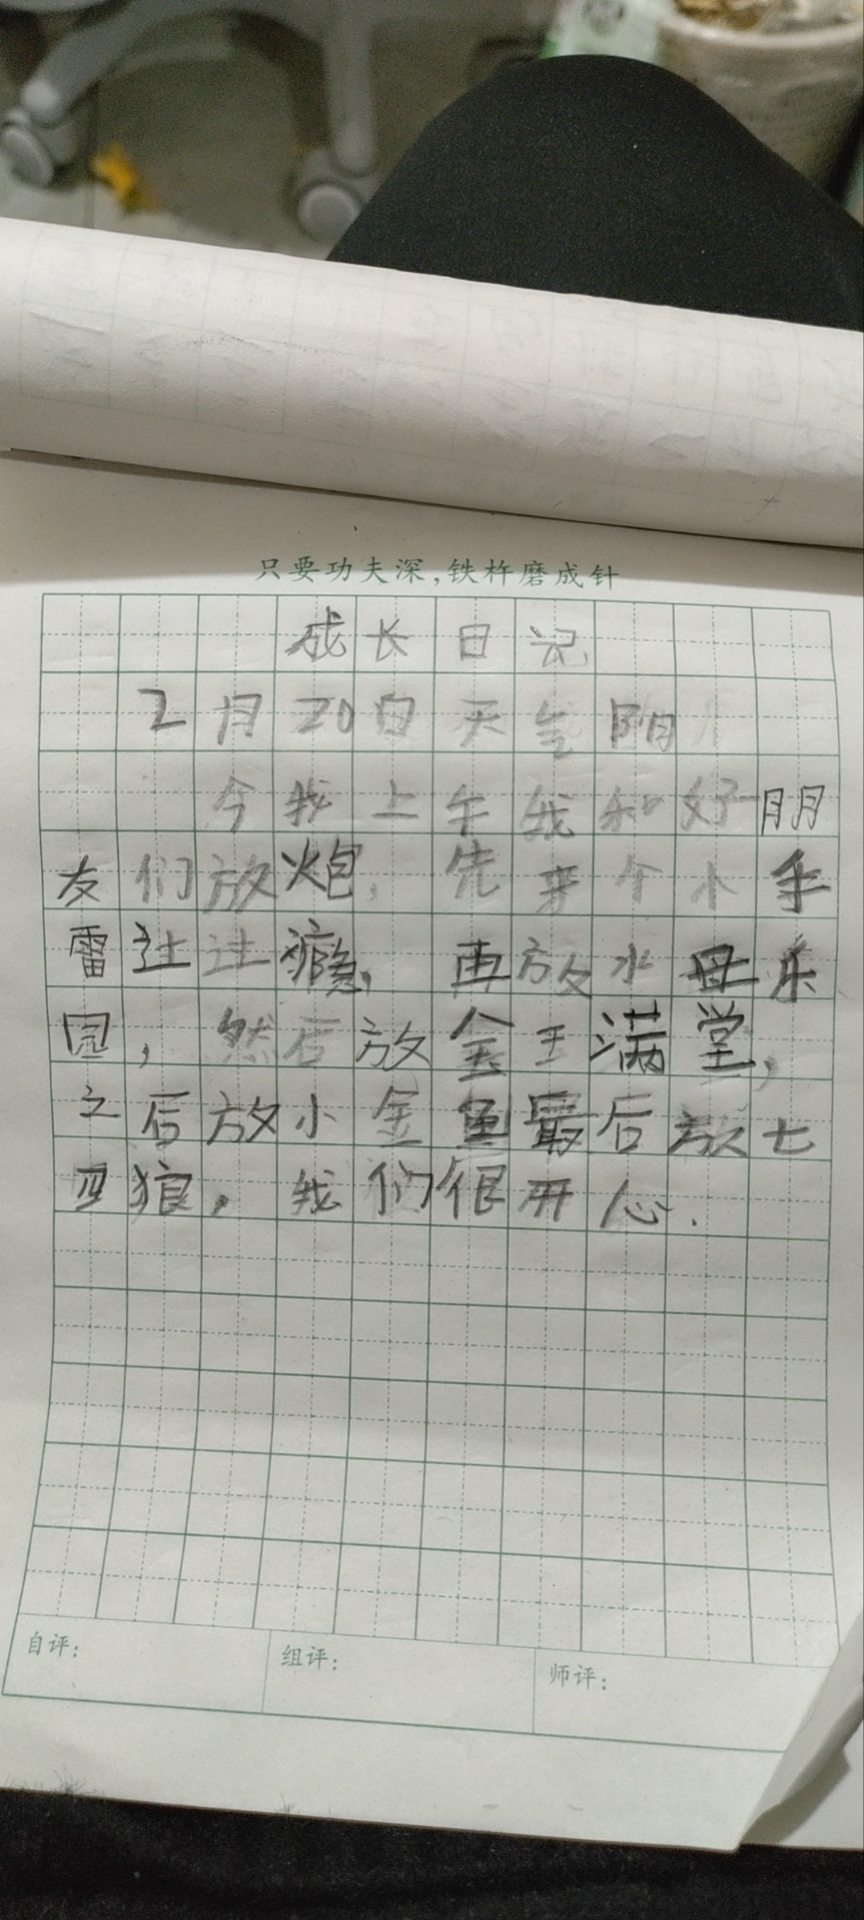 只要功夫深,铁杵磨成针
成长日记
2月20日天气阴
今我上午我和好朋
友们放炮,先来个小手
雷过过瘾,再放水母乐
园,然后放金玉满堂,
之后放小金鱼最后放七
匹狼,我们很开心.
自评:
组评:
师评: